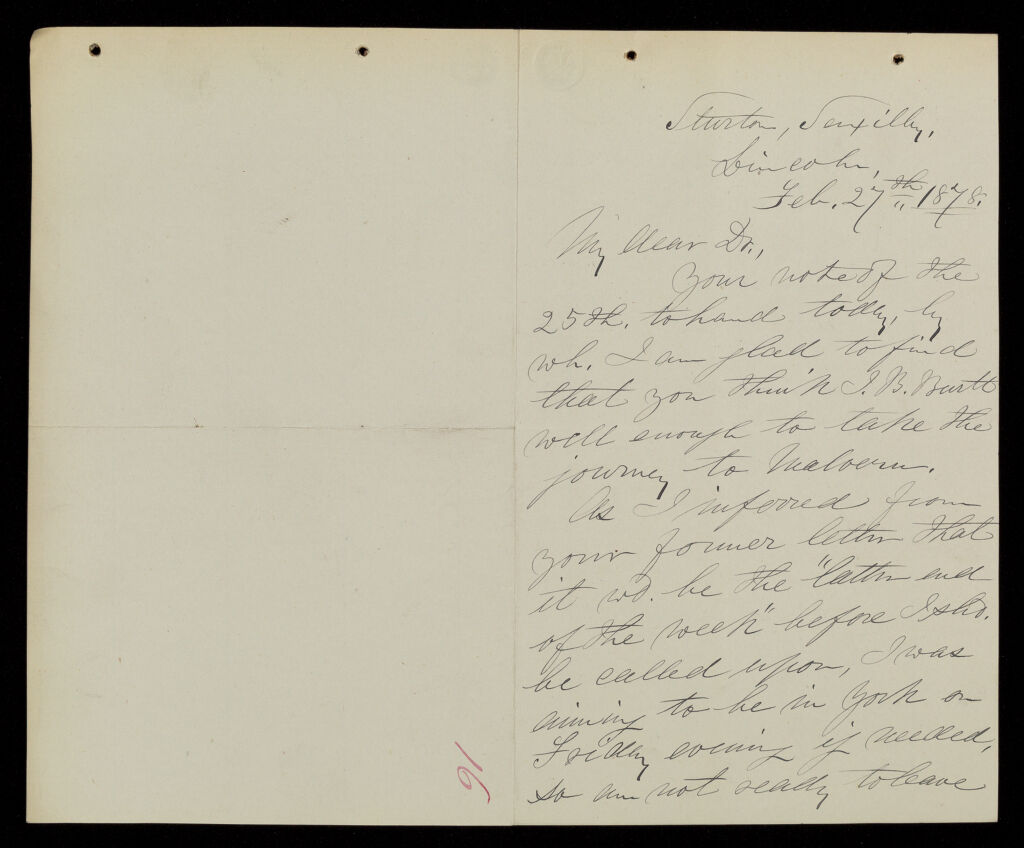 Sturton, Saxilby,
Lincoln,
Feb. 27th 1878.
My dear Dr.,
Your note of the
25th. to hand today, by
wh. I am glad to find
that you think J. B. Burtt
well enough to take the
journey to Malvern.
As I inferred from
your former letter that
it wd. be the "latter end
of the week" before I shd.
be called upon, I was
aiming to be in York on
Friday evening if needed,
so am not ready to leave
91